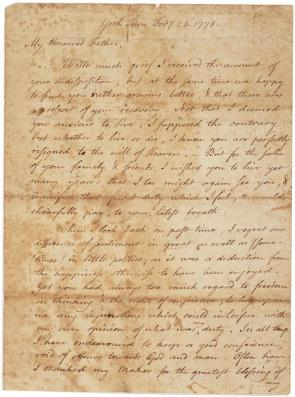 York Town Feby 23. 1778.
My Honoured Father,
With much grief I received the account of
your indisposition, but at the same time was happy
to find you rather growing better, & that there was
a prospect of your recovery. Not that I deemed
you anxious to live, I supposed the contrary
but whether to live or die, I know you are perfectly
resigned to the will of Heaven. — But for the sake
of your family & friends, I wished you to live yet
many years that I too might again see you, &
manifest that first duty which I feel, & would
cheerfully pay, to your latest breath
When I look back on past time, I regret our
difference of sentiment in great as well as (some-
times) in little politics; as it was a deduction from
the happiness otherwise to have been enjoyed.
Yet you had always too much regard to freedom
in thinking & the rights of conscience, to lay upon
me any injunctions which could interfere with
my own opinion of what was my duty. In all things
I have endeavoured to keep a good conscience,
void of offence towards God and man. Often have
I thanked my Maker for the greatest blessing of
my